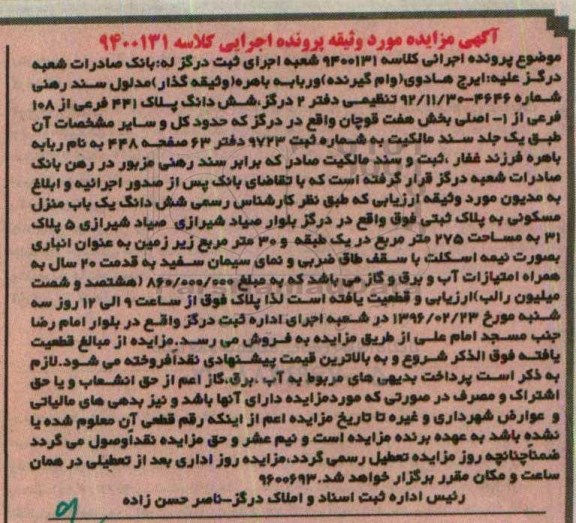 آگهی مزایده مورد وثیقه پرونده اجرایی کلاسه ۹۴۰۰۱۳۱
موضوع پرونده اجرائی کلاسه ۹۴۰۰۱۳۱ شعبه اجرای ثبت درگز له:بانک صادرات شعبه
درگز علیه:ایرج هادوی(وام گیرنده)وربابه باهره(وثیقه گذار)مدلول سند رهنی
شماره ۴۶۴۶-۹۲/۱۱/۳۰ تنظیمی دفتر ۲ درگز،شش دانگ پلاک ۴۴۱ فرعی از ۱۰۸
فرعی از ۱- اصلی بخش هفت قوچان واقع در درگز که حدود کل و سایر مشخصات آن
طبق یک جلد سند مالکیت به شماره ثبت ۹۷۲۳ دفتر ۶۳ صفحه ۴۴۸ به نام ربابه
باهره فرزند غفار ،ثبت و سند مالکیت صادر که برابر سند رهنی مزبور در رهن بانک
صادرات شعبه درگز قرار گرفته است که با تقاضای بانک پس از صدور اجرائیه و ابلاغ
به مدیون مورد وثیقه ارزیابی که طبق نظر کارشناس رسمی شش دانگ یک باب منزل
مسکونی به پلاک ثبتی فوق واقع در درگز بلوار صیاد شیرازی صیاد شیرازی ۵ پلاک
۳۱ به مساحت ۲۷۵ متر مربع در یک طبقه و ۳۰ متر مربع زیر زمین به عنوان انباری
بصورت نیمه اسکلت با سقف طاق ضربی و نمای سیمان سفید به قدمت ۲۰ سال به
همراه امتیازات آب و برق و گاز می باشد که به مبلغ ۸۶۰/۰۰۰/۰۰۰ (هشتصد و شصت
میلیون رالب)ارزیابی و قطعیت یافته است لذا پلاک فوق از ساعت ۹ الی ۱۲ روز سه
شنبه مورخ ۱۳۹۶/۰۲/۲۳ در شعبه اجرای اداره ثبت درگز واقع در بلوار امام رضا
جنب مسجد امام علی از طریق مزایده به فروش می رسد.مزایده از مبالغ قطعیت
یافته فوق الذکر شروع و به بالاترین قیمت پیشنهادی نقداًفروخته می شود.لازم
به ذکر است پرداخت بدیهی های مربوط به آب ،برق،گاز اعم از حق انشعاب و یا حق
اشتراک و مصرف در صورتی که موردمزایده دارای آنها باشد و نیز بدهی های مالیاتی
و عوارض شهرداری و غیره تا تاریخ مزایده اعم از اینکه رقم قطعی آن معلوم شده یا
نشده باشد به عهده برنده مزایده است و نیم عشر و حق مزایده نقداًوصول می گردد
ضمناًچنانچه روز مزایده تعطیل رسمی گردد،مزایده روز اداری بعد از تعطیلی در همان
ساعت و مکان مقرر برگزار خواهد شد.۹۶۰۰۶۹۳
رئیس اداره ثبت اسناد و املاک درگز-ناصر حسن زاده